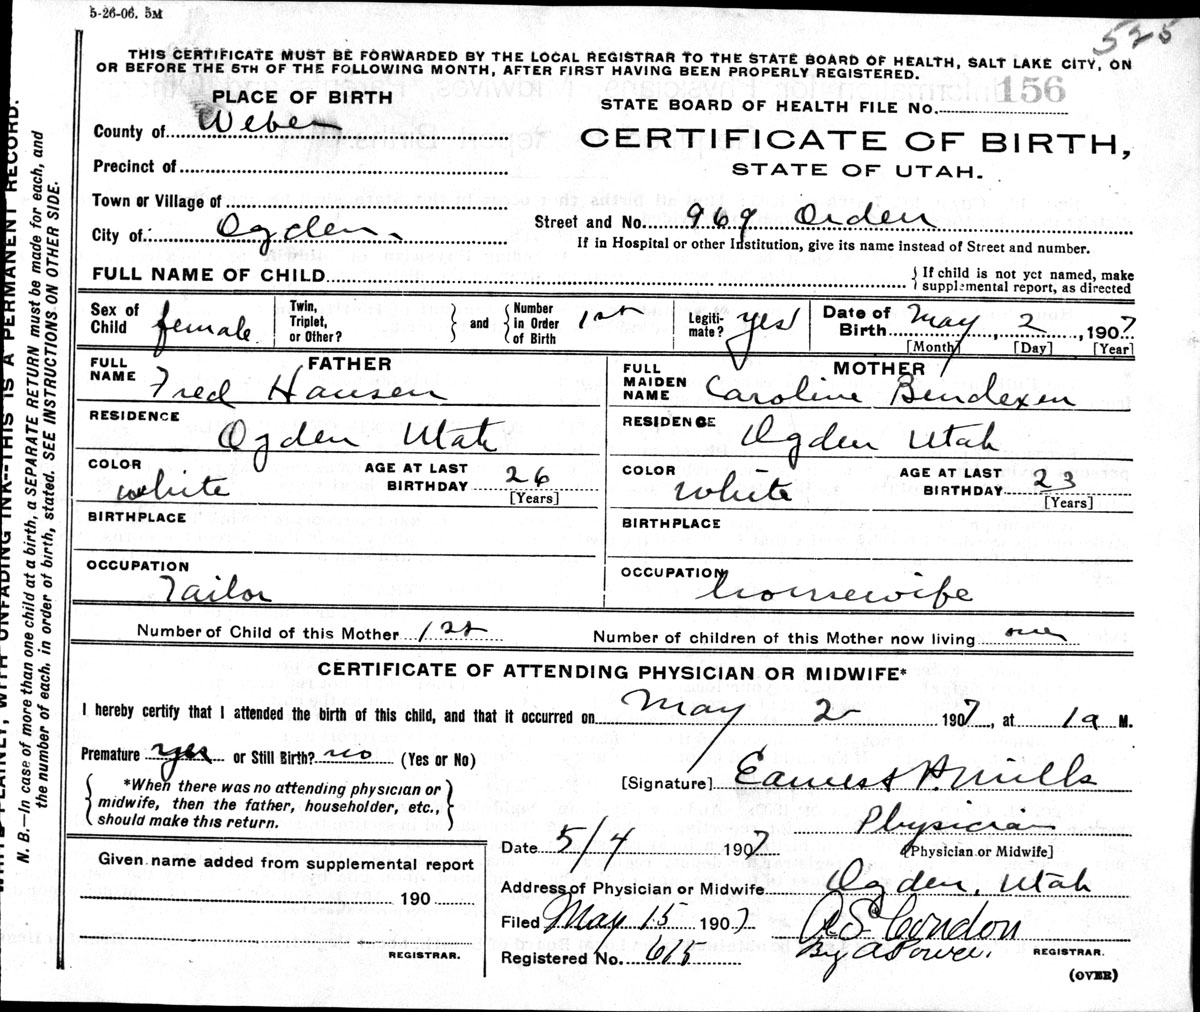 5-26-06. 5M
525
THIS CERTIFICATE MUST BE FORWARDED BY THE LOCAL REGISTRAR TO THE STATE BOARD OF HEALTH, SALT LAKE CITY, ON
OR BEFORE THE 5TH OF THE FOLLOWING MONTH, AFTER FIRST HAVING BEEN PROPERLY REGISTERED.
WITH UNFADING INK--THIS IS A PERMANENT RECORD.
N. B.—In case of more than one child at a birth, a SEPARATE RETURN must be made for each, and
the number of each, in order of birth, stated. SEE INSTRUCTIONS ON OTHER SIDE.
PLACE OF BIRTH
County of Weber
Precinct of
Town or Village of
City of Ogden
STATE BOARD OF HEALTH FILE No. 156
CERTIFICATE OF BIRTH,
STATE OF UTAH.
Street and No. 969 Orden
If in Hospital or other Institution, give its name instead of Street and number.
FULL NAME OF CHILD
{ If child is not yet named, make
supplemental report, as directed
Sex of Child female
Twin, Triplet, or Other?
and
Number in Order of Birth 1st
Legiti-mate? yes
Date of Birth May 2, 1907
[Month] [Day] [Year]
FATHER
FULL NAME Fred Hansen
RESIDENCE Ogden Utah
COLOR white
AGE AT LAST BIRTHDAY 26
[Years]
BIRTHPLACE
OCCUPATION
Tailor
MOTHER
FULL MAIDEN NAME Caroline Bendexen
RESIDENCE Ogden Utah
COLOR white
AGE AT LAST BIRTHDAY 23
[Years]
BIRTHPLACE
OCCUPATION
housewife
Number of Child of this Mother 1st
Number of children of this Mother now living one
CERTIFICATE OF ATTENDING PHYSICIAN OR MIDWIFE*
I hereby certify that I attended the birth of this child, and that it occurred on May 2 1907, at 1 a M.
Premature yes or Still Birth? no (Yes or No)
{ *When there was no attending physician or
midwife, then the father, householder, etc.,
should make this return. }
[Signature] Earnest P. Mills
Physician
[Physician or Midwife]
Date 5/4 1907
Address of Physician or Midwife Ogden, Utah
Filed May 15 1907
Registered No. 615
Condon
By
REGISTRAR.
(OVER)
Given name added from supplemental report
190
REGISTRAR.